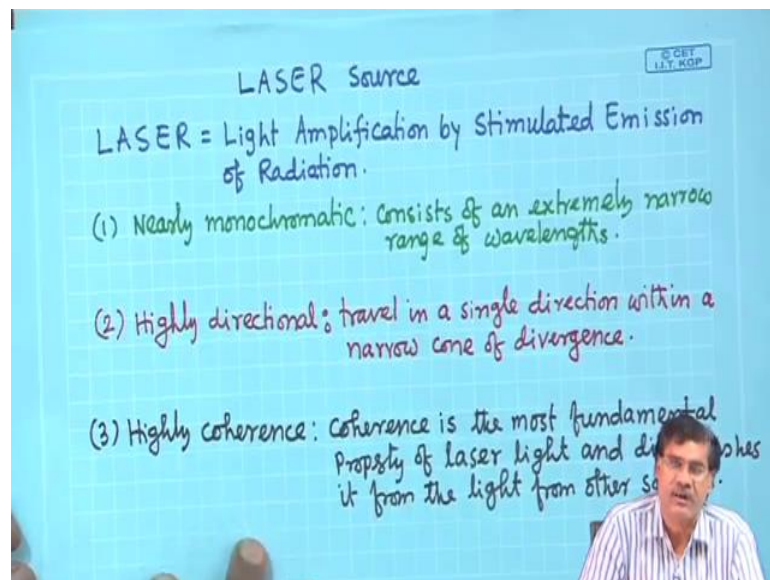 © CET
I.I.T. KGP
LASER Source
LASER = Light Amplification by Stimulated Emission
of Radiation.
(1) Nearly monochromatic: consists of an extremely narrow
range of wavelengths.
(2) Highly directional: travel in a single direction within a
narrow cone of divergence.
(3) Highly coherence: coherence is the most fundamental
Property of laser light and
it from the light from other